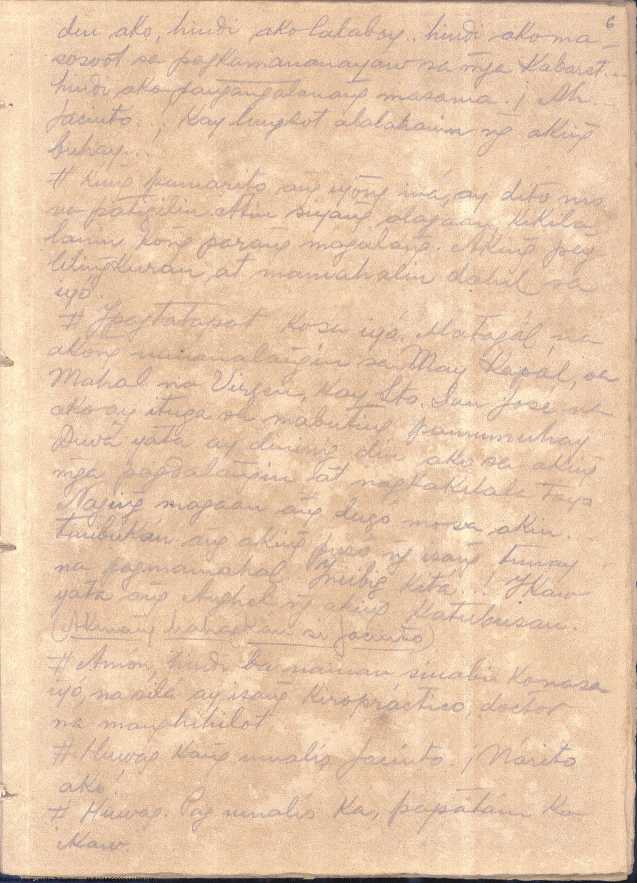 6
din ako, hindi ako lalaboy.. hindi ako ma-
sosoot sa pagkamananayaw sa mga Kabaret...
hindi ako pangangalanang masama. ¡ Ah
Jacinto...! Kay lungkot alalahanin ng aking
buhay...
# Kung pumarito ang iyong iná, ay dito mo
na patigilin. Atin siyang alagaan, kikila
lanin kong parang magulang. Aking
at mamahalin dahil sa
iyó.
# Ipagtatapat ko sa iyó. Matagál na
akong nananalangin sa May Kapál, sa
Mahal na Virgen, kay Sto. San José na
ako ay ituga sa mabuting pamumuhay
Diwà yata ay dininig din ako sa aking
mga pagdalangin at nagkakilala tayo
Naging magaan ang dugo mo sa akin...
tinubuan ang aking pusò ng isang tunay
na pagmamahal Iniibig kitá..! Ikaw
yata ang Anghel ng aking Katubusan.
(Akmang hahagkan si Jacinto)
# Amón, hindi ba naman sinabi ko na sa
iyó, na silá ay isang Kiropráctico, doctor
na manghihilot
# Huwag kang umalis Jacinto. ¡ Nárito
akó!
# Huwag. Pag umalis ka, papatáin ka
ikaw.